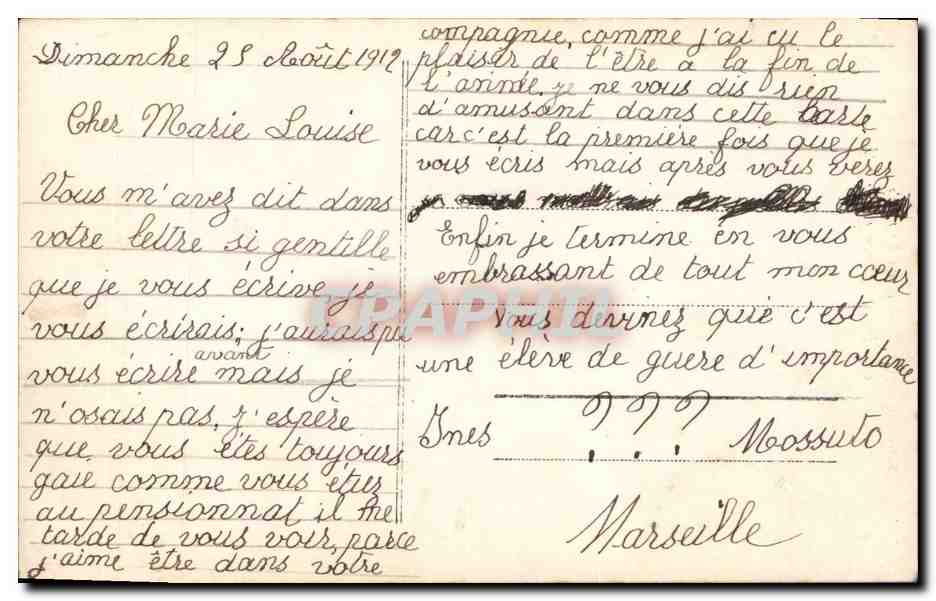 Dimanche 25 Août 1912
Cher Marie Louise
Vous m'avez dit dans
votre lettre si gentille
que je vous écrive je
vous écrirais; j'aurais pu
avant
vous écrire mais je
n'osais pas, j'espère
que vous êtes toujours
gaie comme vous étiez
au pensionnat il me
tarde de vous voir, parce
j'aime être dans votre
compagnie, comme j'ai eu le
plaisir de l'être à la fin de
l'année, je ne vous dis rien
d'amusant dans cette carte
car c'est la première fois que je
vous écris mais après vous verez
Enfin je termine en vous
embrassant de tout mon coeur
Vous devinez que c'est
une élève de guere d'importance
???
Ines Mossuto
Marseille
CPAPHIL